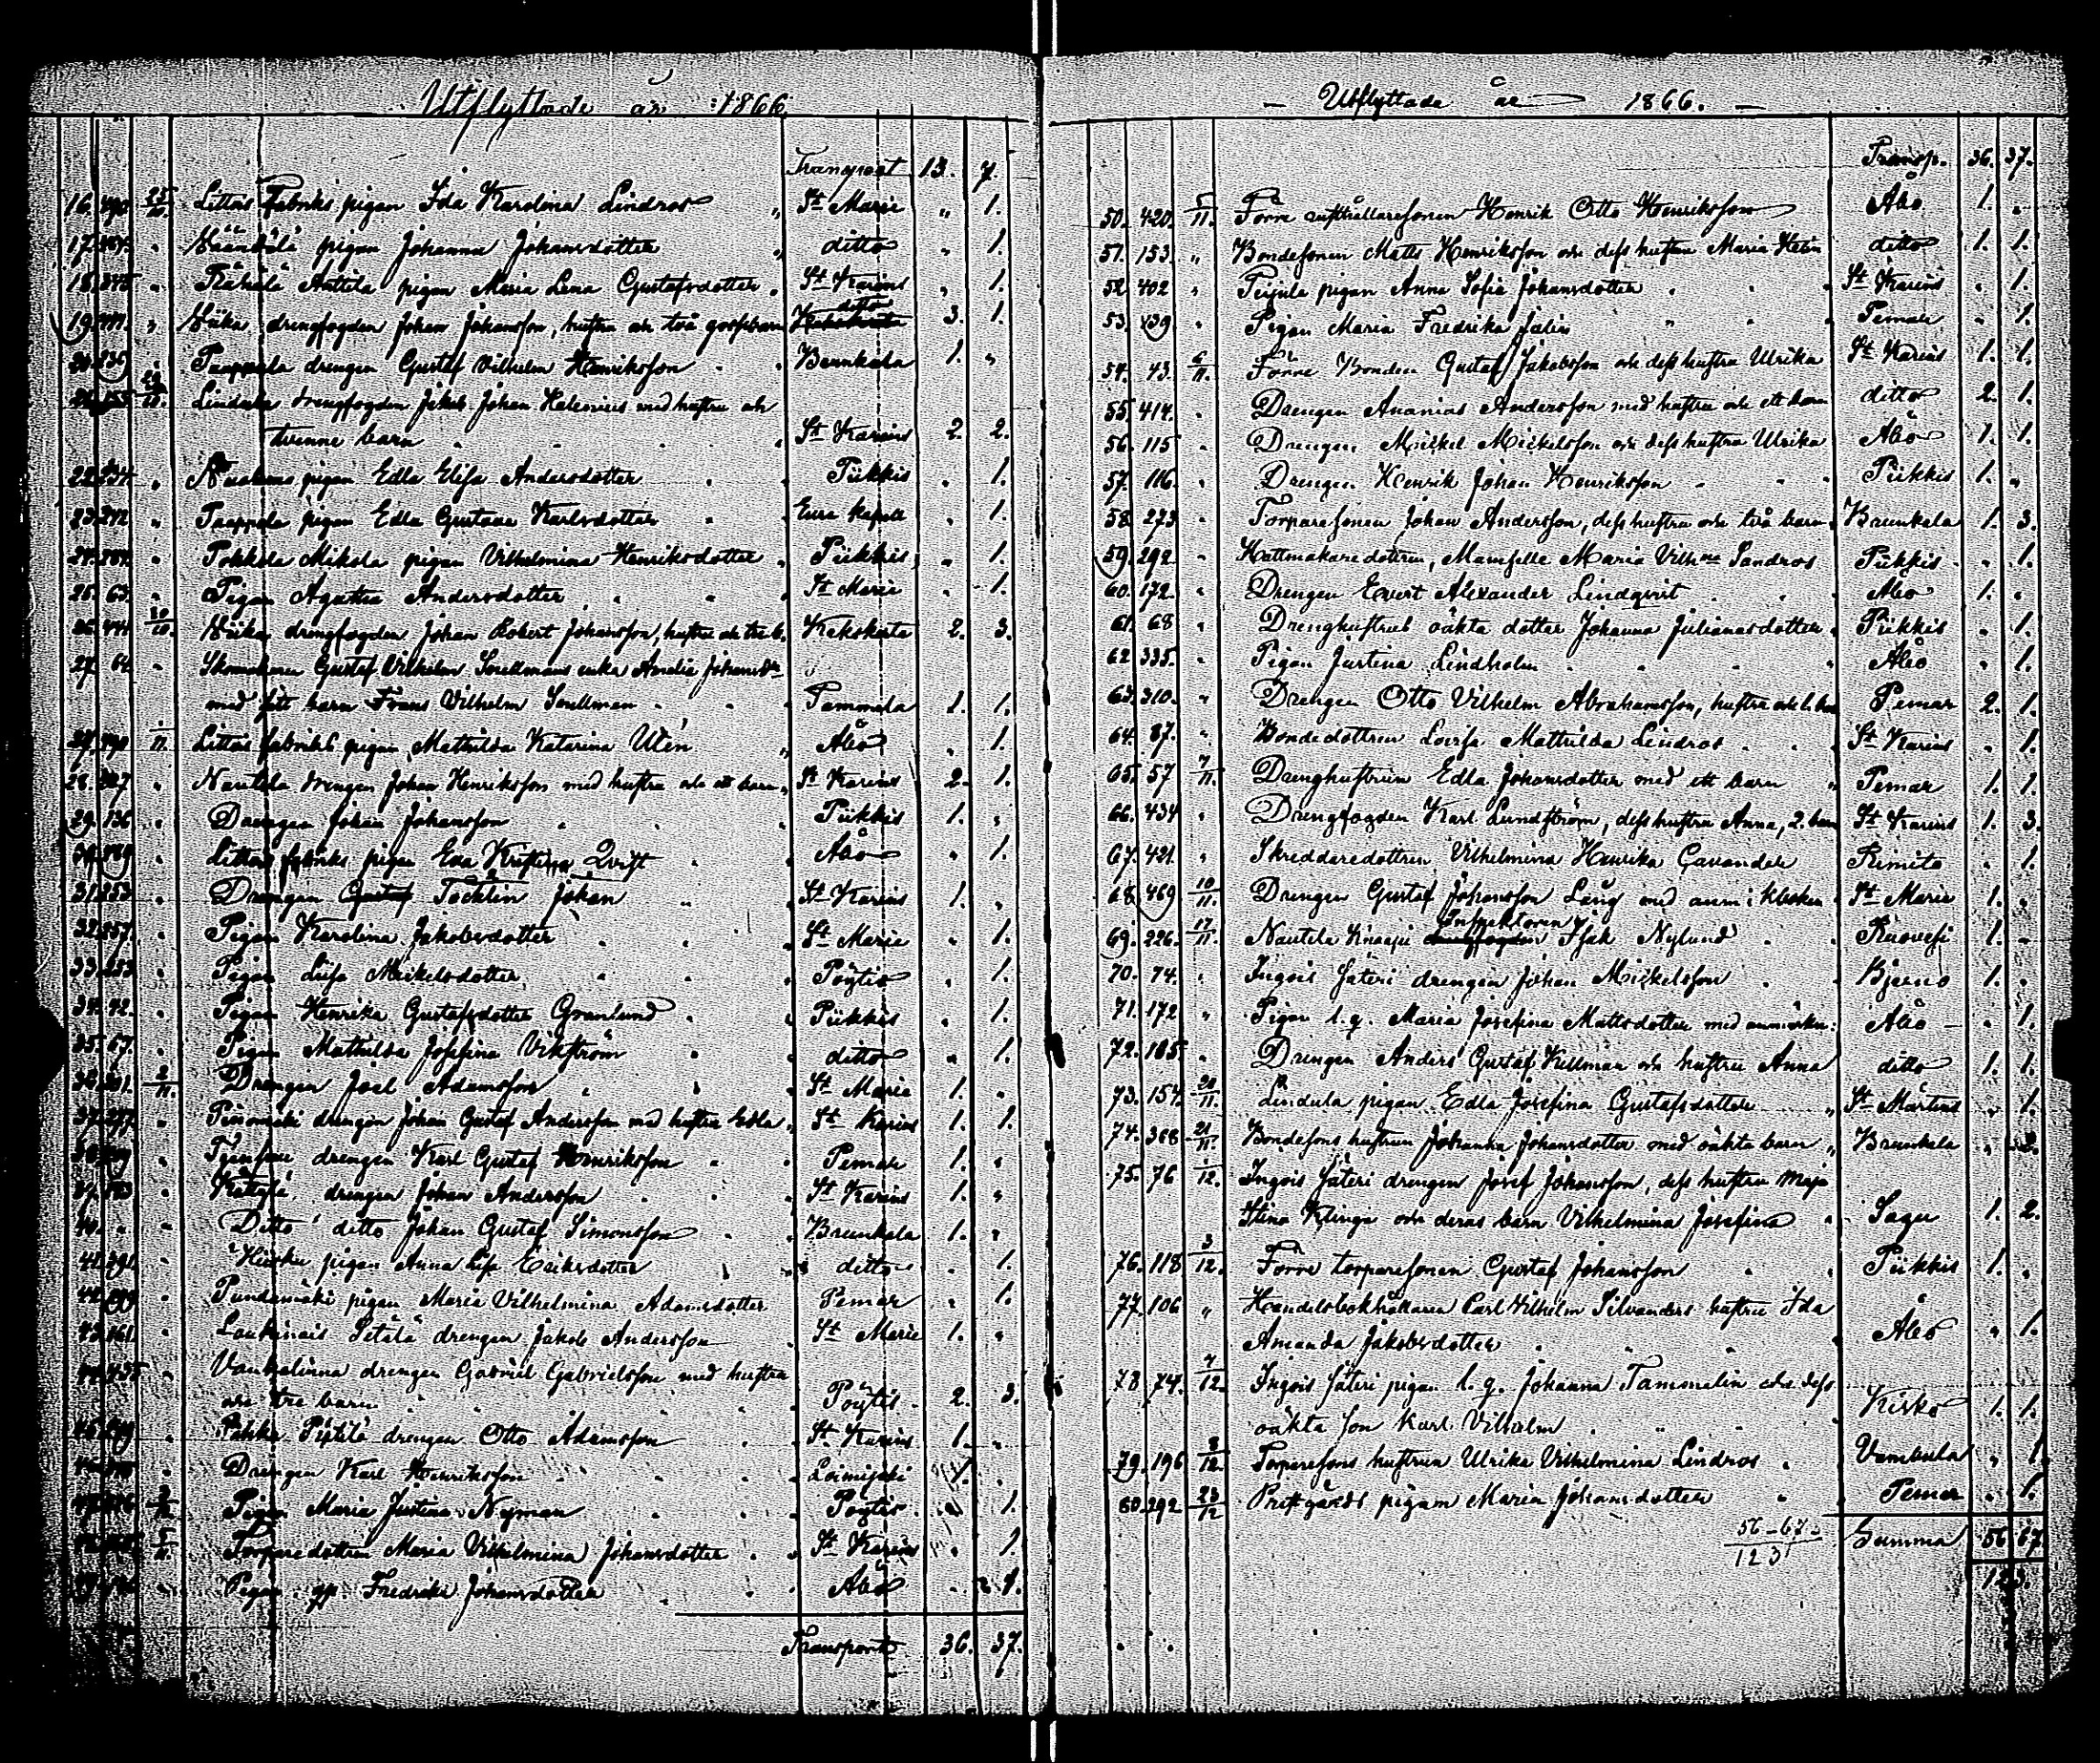 Utflyttade år 1866.
Transport 13. 7.
16. 490 25/10. Littois Fabriks pigan Ida Karolina Lindros " St Marie " 1.
17. " pigan Johanna Johansdotter " ditto " 1.
18. " Antila pigan Maria Lena Gustafsdotter " St Karins " 1.
19. " drengfogden Johan Johansson, hustru och två gossebarn ditto 3. 1.
" drengen Gustaf Vilhelm Henriksson Brunkala 1. "
drengfogden Jakob Johan Helenius med hustru och
tvenne barn St Karins 2. 2.
22. " pigan Edla Elisa Andersdotter Piikkis " 1.
23. 272 " pigan Edla Gustava Karlsdotter Eura Kapell " 1.
24. " Pokkola Mikola pigan Vilhelmina Henriksdotter " Piikkis " 1.
25. 63. " Pigan Agatha Andersdotter St Marie " 1.
26. 30/10. drengfogden Johan Robert Johansson, hustru och tre b. Kakskerta 2. 3.
27. 64 " Skomakaren Gustaf Vilhelm Snellmans enka Amelia Johansdr
med sitt barn Frans Vilhelm Snellman Tammela 1. 1.
1/11. Littois fabriks pigan Mathilda Katarina Utén " Åbo " 1.
28. " Nautela drengen Johan Henriksson med hustru och ett barn " St Karins 2. 1.
29. 136 " Drengen Johan Johansson Piikkis 1. "
" Littois fabriks pigan Eva Kristina Qvist Åbo " 1.
31. 253 " Drengen Gustaf Tocklin Johan St Karins 1. "
32. 557. " Pigan Karolina Jakobsdotter St Marie " 1.
33. 253 " Pigan Lisa Mickelsdotter Pöytis " 1.
34. 42. " Pigan Henrika Gustafsdotter Granlund Piikkis " 1.
35. 67. " Pigan Mathilda Josefina Vikström ditto " 1.
36. 2/11. Drengen Joel Adamsson St Marie 1. "
37. " drengen Johan Gustaf Andersson med hustru Edla " St Karins 1. 1.
" drengen Karl Gustaf Henriksson Pemar 1. "
" drengen Johan Andersson St Karins 1. "
40. " " Ditto ditto Johan Gustaf Simonsson Brunkala 1. "
pigan Anna Lisa Eriksdotter ditto " 1.
" pigan Maria Vilhelmina Adamsdotter Pemar " 1.
" Laukinais Setälä drengen Jakob Andersson St Marie 1. "
Vanhalinna drengen Gabriel Gabrielsson med hustru
och tre barn Pöytis 2. 3.
drengen Otto Adamsson St Karins 1. "
" Drengen Karl Henriksson Loimijoki 1. "
Pigan Maria Justina Nyman Pöytis " 1.
Torparedottren Maria Vilhelmina Johansdotter St Karins " 1.
Pigan Fredrika Johansdotter Åbo " 1.
Transporte 36. 37.
Utflyttade år 1866.
Transp. 36. 37.
50. 420. 5/11. Förre rusthållaresonen Henrik Otto Henriksson Åbo 1. "
51. 153. " Bondesonen Matts Henriksson och dess hustru Maria Helin ditto 1. 1.
52. 402 " pigan Anna Sofia Johansdotter St Karins " 1.
53. 439 " Pigan Maria Fredrika Salin Pemar " 1.
54. 43. 6/11. Förre Bonden Gustaf Jakobsson och dess hustru Ulrika St Karins 1. 1.
55. 414. " Drengen Ananias Andersson med hustru och ett barn ditto 2. 1.
56. 115 " Drengen Mickel Mickelsson och dess hustru Ulrika Åbo 1. 1.
57. 116. " Drengen Henrik Johan Henriksson Piikkis 1. "
58. 273 " Torparesonen Johan Andersson, dess hustru och två barn Brunkala 1. 3.
59. 292 " Hattmakaredottren, Mamselle Maria Vilhna Sandros Piikkis " 1.
60. 172. " Drengen Evert Alexander Lindqvist Åbo 1. "
61. 68 " Drenghustrus oäkta dotter Johanna Julianasdotter Piikkis " 1.
62. 335. " Pigan Justina Lindholm Åbo " 1.
63. 310. " Drengen Otto Vilhelm Abrahamsson, hustru och 1. barn Pemar 2. 1.
64. 87. " Bondedottren Lovisa Mathilda Lindros St Karins " 1.
65. 57 7/11. Drenghustrun Edla Johansdotter med ett barn " Pemar 1. 1.
66. 434 " Drengfogden Karl Lundström, dess hustru Anna, 2. barn St Karins 1. 3.
67. 421. " Skreddaredottren Vilhelmina Henrika Cavander Rimito " 1.
68. 469 10/11. Drengen Gustaf Johansson Lång med anm: i klocken St Marie 1. "
69. 226. 17/11. Nautela Knaapi drengfogden Inspektoren Isak Nylund Ruovesi 1. "
70. 74. " Ingois Säteri drengen Johan Mickelsson Bjerno 1. "
71. 172 " Pigan l. q. Maria Josefina Mattsdotter med anmärkn: Åbo " 1.
72. 165. " Drengen Anders Gustaf Killman och hustru Anna ditto 1. 1.
73. 157. 20/11. Lindula pigan Edla Josefina Gustafsdotter " St Mårtens " 1.
74. 368 21/11. Bondesons hustrun Johanna Johansdotter med oäkta barn " Brunkala " 2.
75. 76 1/12. Ingois Säteri drengen Josef Johansson, dess hustru Maja
Stina Klinga och deras barn Vilhelmina Josefina Sagu 1. 2.
76. 118 3/12. Förre torparesonen Gustaf Johansson Piikkis 1. "
77. 106 " Handelsbokhållaren Carl Vilhelm Silvanders hustru Ida
Amanda Jakobsdotter Åbo " 1.
78. 74. 7/12. Ingois Säteri pigan l. q. Johanna Tammelin och dess
oäkta son Karl Vilhelm Kisko 1. 1.
79. 196 8/12. Torparesons hustrun Ulrika Vilhelmina Lindros Vambula " 1.
80. 292 23/12 Prestgårds pigan Maria Johansdotter Pemar " 1.
56-67- Summa 56 67.
123 123.